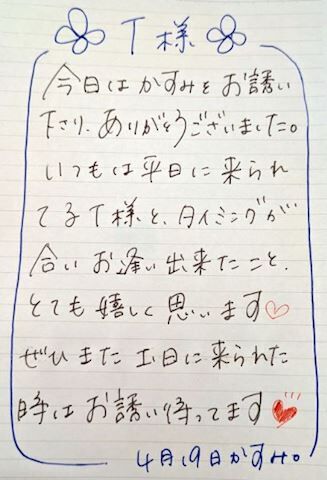 T様
今日はかすみをお誘い
下さり、ありがとうございました。
いつもは平日に来られ
てるT様と、タイミングが
合いお逢い出来たこと、
とても嬉しく思います♡
ぜひまた土日に来られた
時はお誘い待ってます♥
4月19日かすみ。